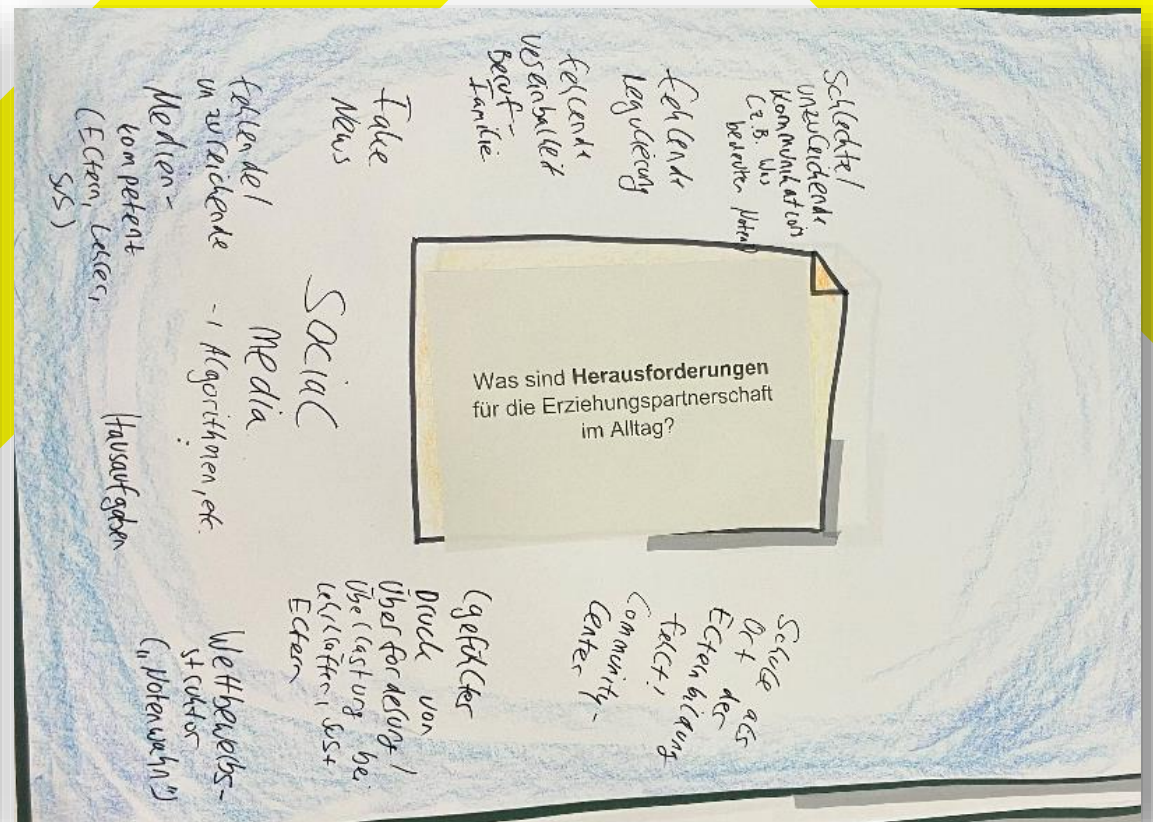 Was sind Herausforderungen
für die Erziehungspartnerschaft
im Alltag?
Schlechte/
unzureichende
Kommunikation
(z.B. Was
bedeuten Noten)
fehlende
Regulierung
fehlende
Vereinbarkeit
Beruf-
Familie
Fake
News
fehlende/
unzureichende
Medien-
kompetent
(Eltern, Lehrer,
SuS)
Social
Media
-, Algorithmen, etc.
Hausaufgaben
Schule als
Ort der
Elternbildung
fehlt!
Community-
Center
(gefühlter
Druck von
Überforderung/
Überlastung bei
Lehrkräften, SuS+
Eltern
Wettbewerbs-
struktur
("Notenwahn")